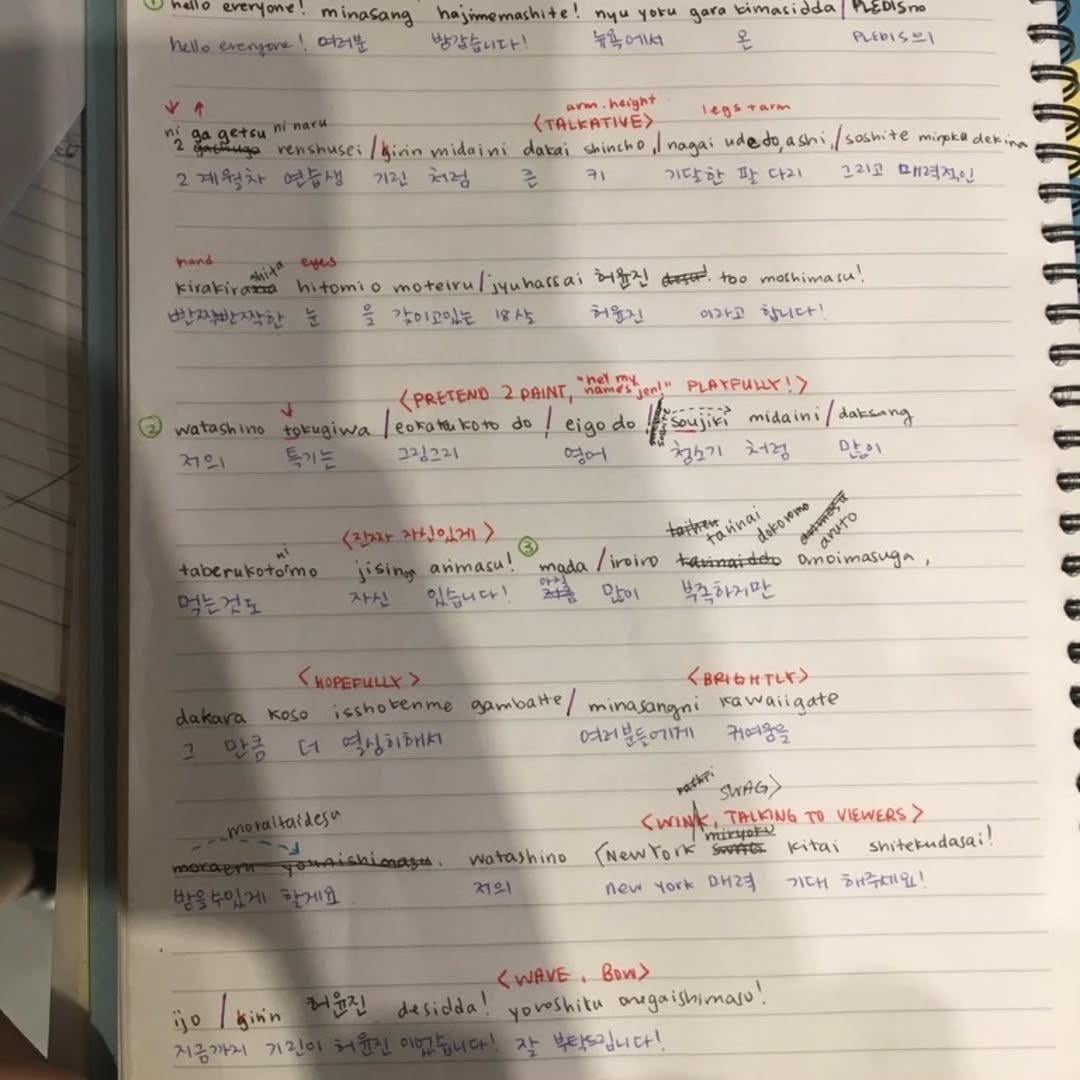 ① hello everyone! minasang hajimemashite! nyu yoku gara kimasidda / PLEDISno
hello everyone! 여러분 방갑습니다! 뉴욕에서 온 PLEDIS의
arm. height legs + arm
ni ga getsu ni naru <TALKATIVE>
2 renshusei / girin midaini dakai shincho, / nagai udedo, ashi, / soshite miroku dekina
2 계월차 연습생 기린 처럼 큰 키 기달한 팔 다리 그리고 매력적인
hand shita eyes
kirakira hitomi o moteiru / jyuhassai 허윤진 desu! too moshimasu!
빤짝빤짝한 눈 을 갖이고있는 18살 허윤진 이라고 합니다!
<PRETEND 2 PAINT, "hey my names jen!" PLAYFULLY!>
② watashino tokugiwa / eokakukoto do / eigo do / soujiki midaini / daksang
저의 특기는 그림그리 영어 청소기 처럼 많이
<진짜 자신있게> tarinai dokoromo aruto
taberukoto mo ni jisinga arimasu! ③ mada / iroiro tarinai ddo omoimasuga,
먹는것도 자신 있습니다! 아직 많이 부족하지만
<HOPEFULLY> <BRIGHTLY>
dakara koso isshokenme gambatte / minasangni kawaiigate
그 만큼 더 열심히해서 여러분들에게 귀여움을
SWAG>
moraitaidesu <WINK, TALKING TO VIEWERS>
miryoku
moraeru younishimasu. watashino (New York kitai shitekudasai!
받을수있게 할게요 저의 new york 매력 기대 해주세요!
<WAVE, BOW>
ijo / girin 허윤진 desidda! yoroshiku onegaishimasu!
지금까지 기린이 허윤진 이었습니다! 잘 부탁드립니다!